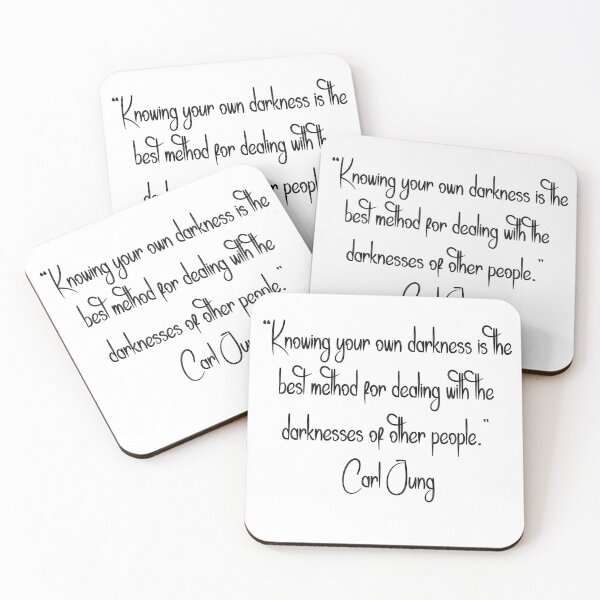 “Knowing your own darkness is the
best method for dealing with
people
“Knowing your own darkness is the
best method for dealing with the
darknesses of other people.”
Carl Jung
“Knowing your own darkness is the
best method for dealing with the
darknesses of other people.”
Carl Jung
“Knowing your own darkness is the
best method for dealing with the
darknesses of other people.”
Carl Jung